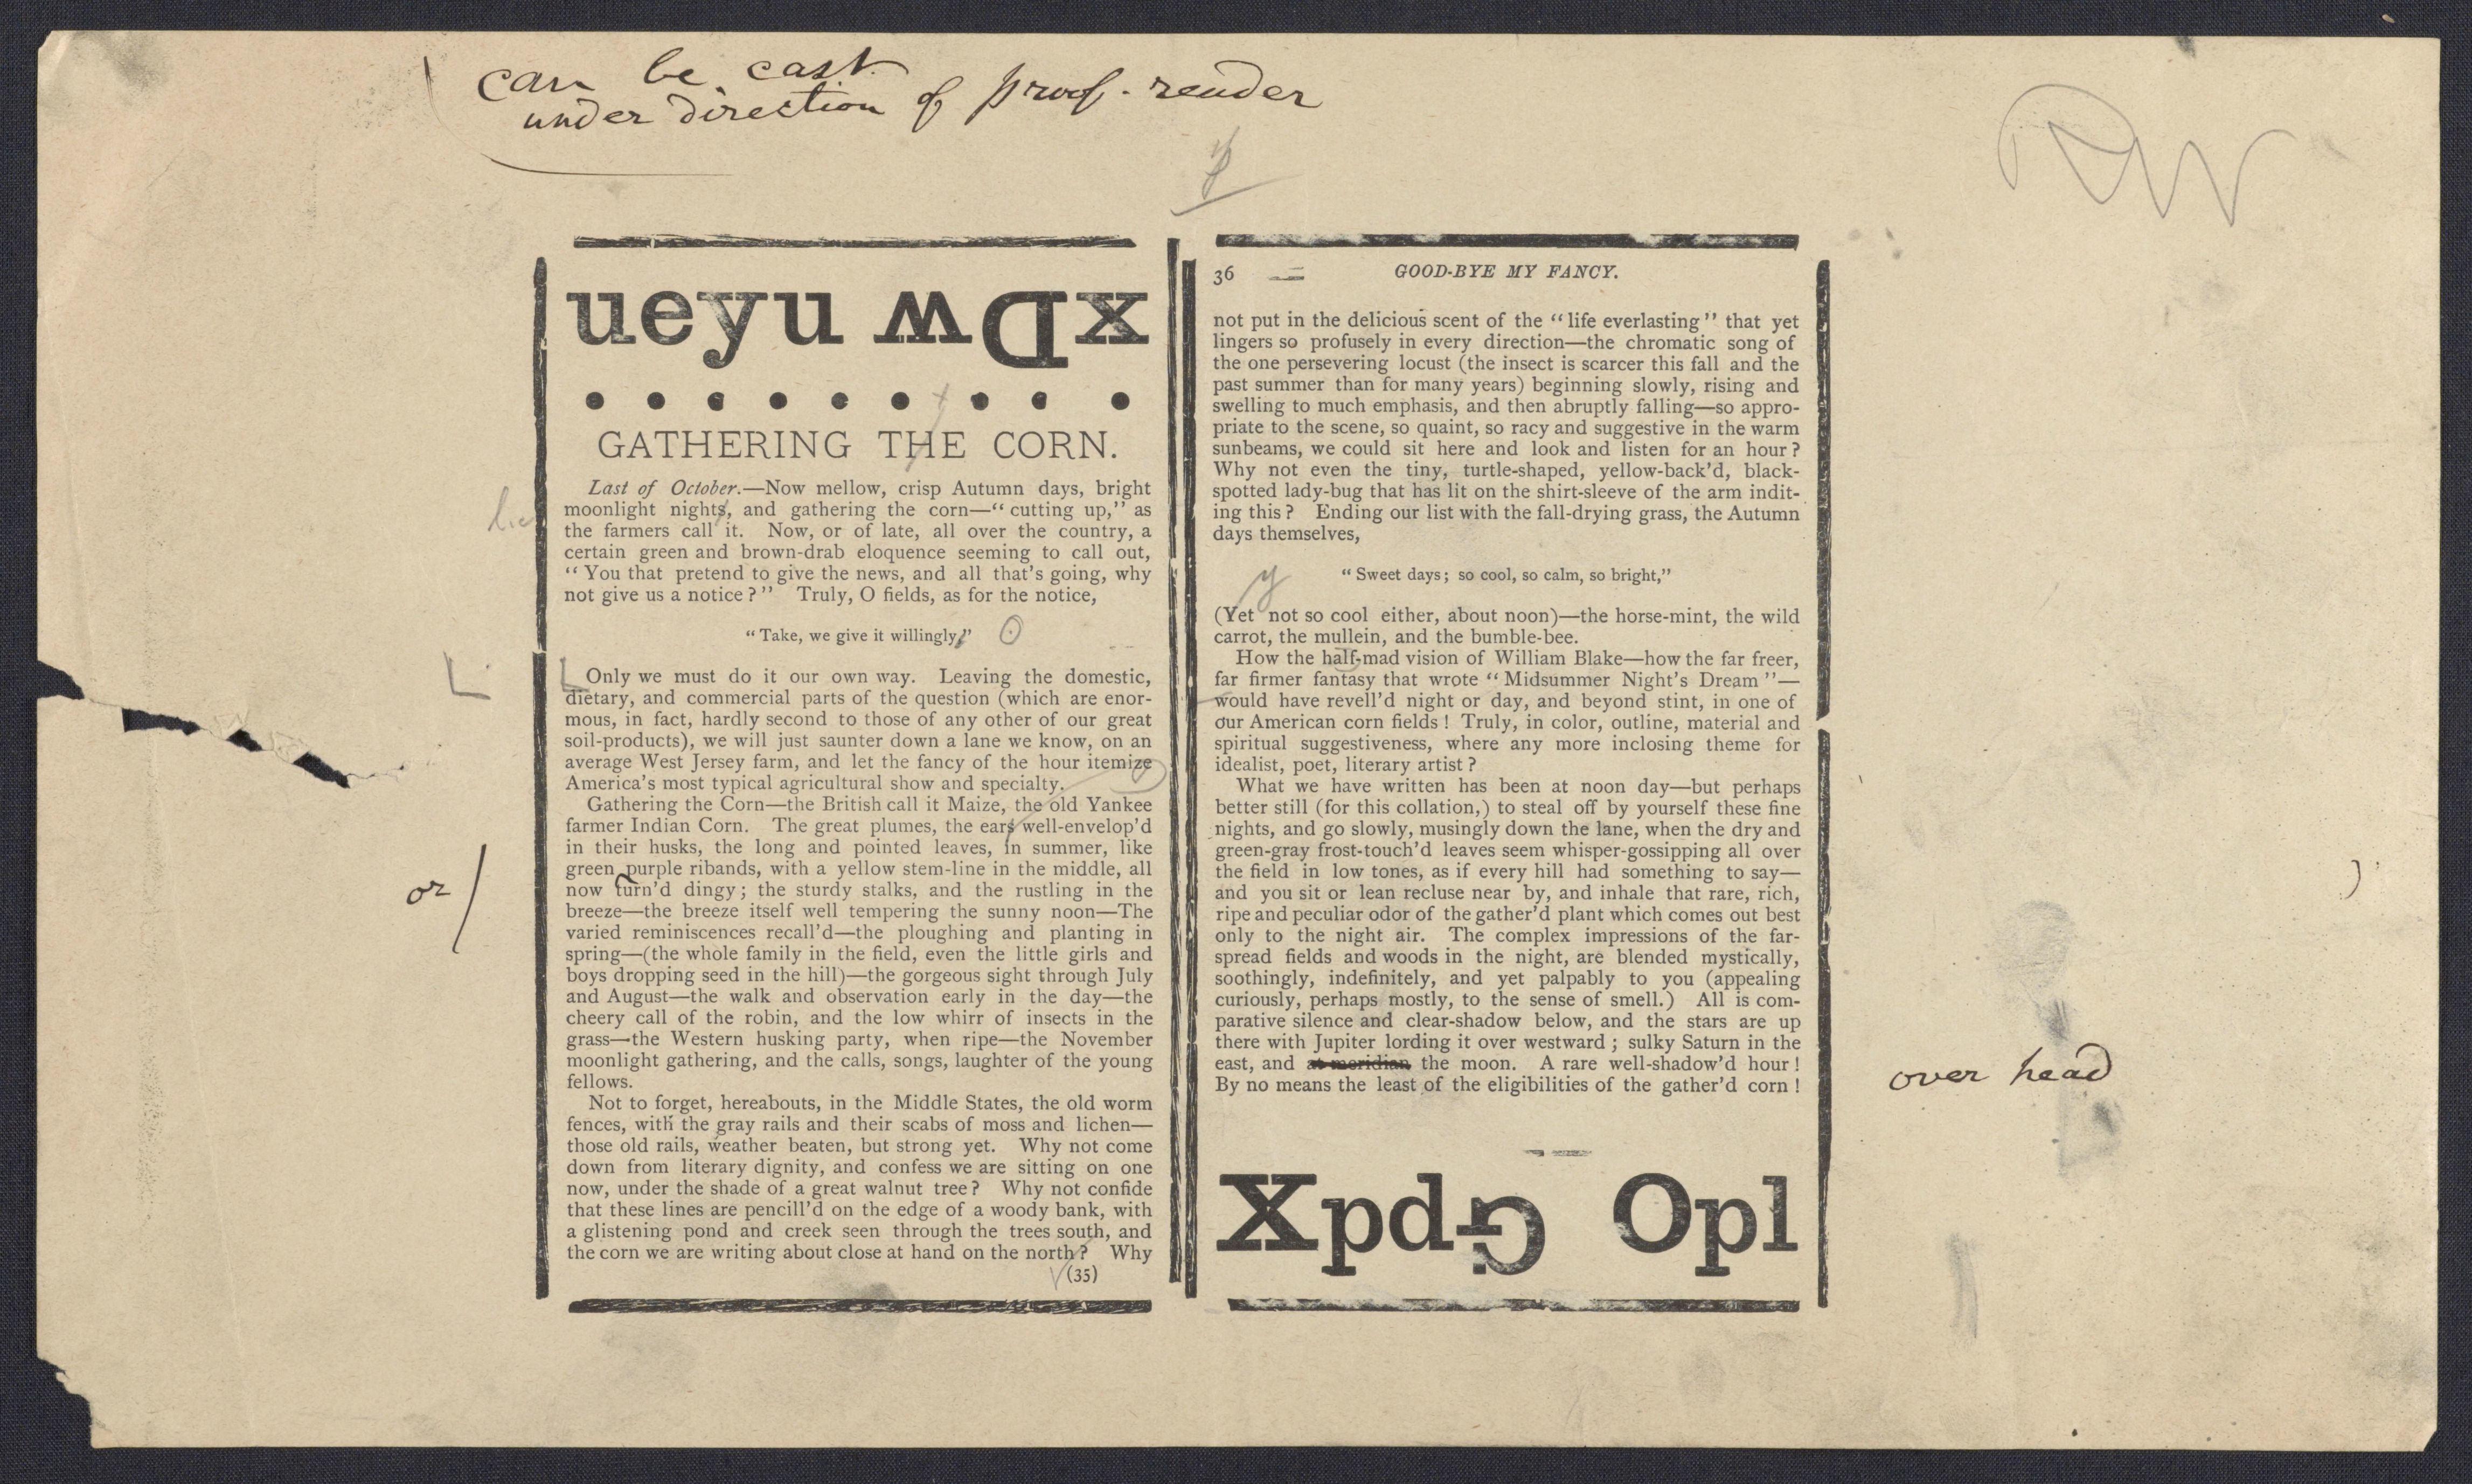 can be cast
under direction of proof-reader
RW
ueyu MDx
GATHERING THE CORN.
Last of October.—Now mellow, crisp Autumn days, bright
moonlight nights, and gathering the corn—“cutting up,” as
the farmers call it. Now, or of late, all over the country, a
certain green and brown-drab eloquence seeming to call out,
“You that pretend to give the news, and all that's going, why
not give us a notice?” Truly, O fields, as for the notice,
“Take, we give it willingly,”
Only we must do it our own way. Leaving the domestic,
dietary, and commercial parts of the question (which are enor-
mous, in fact, hardly second to those of any other of our great
soil-products), we will just saunter down a lane we know, on an
average West Jersey farm, and let the fancy of the hour itemize
America's most typical agricultural show and specialty.
Gathering the Corn—the British call it Maize, the old Yankee
farmer Indian Corn. The great plumes, the ears well-envelop'd
in their husks, the long and pointed leaves, in summer, like
green purple ribands, with a yellow stem-line in the middle, all
or/
now turn'd dingy; the sturdy stalks, and the rustling in the
breeze—the breeze itself well tempering the sunny noon—The
varied reminiscences recall'd—the ploughing and planting in
spring—(the whole family in the field, even the little girls and
boys dropping seed in the hill)—the gorgeous sight through July
and August—the walk and observation early in the day—the
cheery call of the robin, and the low whirr of insects in the
grass—the Western husking party, when ripe—the November
moonlight gathering, and the calls, songs, laughter of the young
fellows.
Not to forget, hereabouts, in the Middle States, the old worm
fences, with the gray rails and their scabs of moss and lichen—
those old rails, weather beaten, but strong yet. Why not come
down from literary dignity, and confess we are sitting on one
now, under the shade of a great walnut tree? Why not confide
that these lines are pencill'd on the edge of a woody bank, with
a glistening pond and creek seen through the trees south, and
the corn we are writing about close at hand on the north? Why
(35)
36 GOOD-BYE MY FANCY.
not put in the delicious scent of the “life everlasting” that yet
lingers so profusely in every direction—the chromatic song of
the one persevering locust (the insect is scarcer this fall and the
past summer than for many years) beginning slowly, rising and
swelling to much emphasis, and then abruptly falling—so appro-
priate to the scene, so quaint, so racy and suggestive in the warm
sunbeams, we could sit here and look and listen for an hour?
Why not even the tiny, turtle-shaped, yellow-back'd, black-
spotted lady-bug that has lit on the shirt-sleeve of the arm indit-
ing this? Ending our list with the fall-drying grass, the Autumn
days themselves,
“Sweet days; so cool, so calm, so bright,”
y
(Yet not so cool either, about noon)—the horse-mint, the wild
carrot, the mullein, and the bumble-bee.
How the half-mad vision of William Blake—how the far freer,
far firmer fantasy that wrote “Midsummer Night's Dream”—
would have revell'd night or day, and beyond stint, in one of
our American corn fields! Truly, in color, outline, material and
spiritual suggestiveness, where any more inclosing theme for
idealist, poet, literary artist?
What we have written has been at noon day—but perhaps
better still (for this collation,) to steal off by yourself these fine
nights, and go slowly, musingly down the lane, when the dry and
green-gray frost-touch'd leaves seem whisper-gossipping all over
the field in low tones, as if every hill had something to say—
and you sit or lean recluse near by, and inhale that rare, rich,
ripe and peculiar odor of the gather'd plant which comes out best
only to the night air. The complex impressions of the far-
spread fields and woods in the night, are blended mystically,
soothingly, indefinitely, and yet palpably to you (appealing
curiously, perhaps mostly, to the sense of smell.) All is com-
parative silence and clear-shadow below, and the stars are up
there with Jupiter lording it over westward; sulky Saturn in the
east, and at meridian the moon. A rare well-shadow'd hour!
over head
By no means the least of the eligibilities of the gather'd corn!
Xpd-G Opl